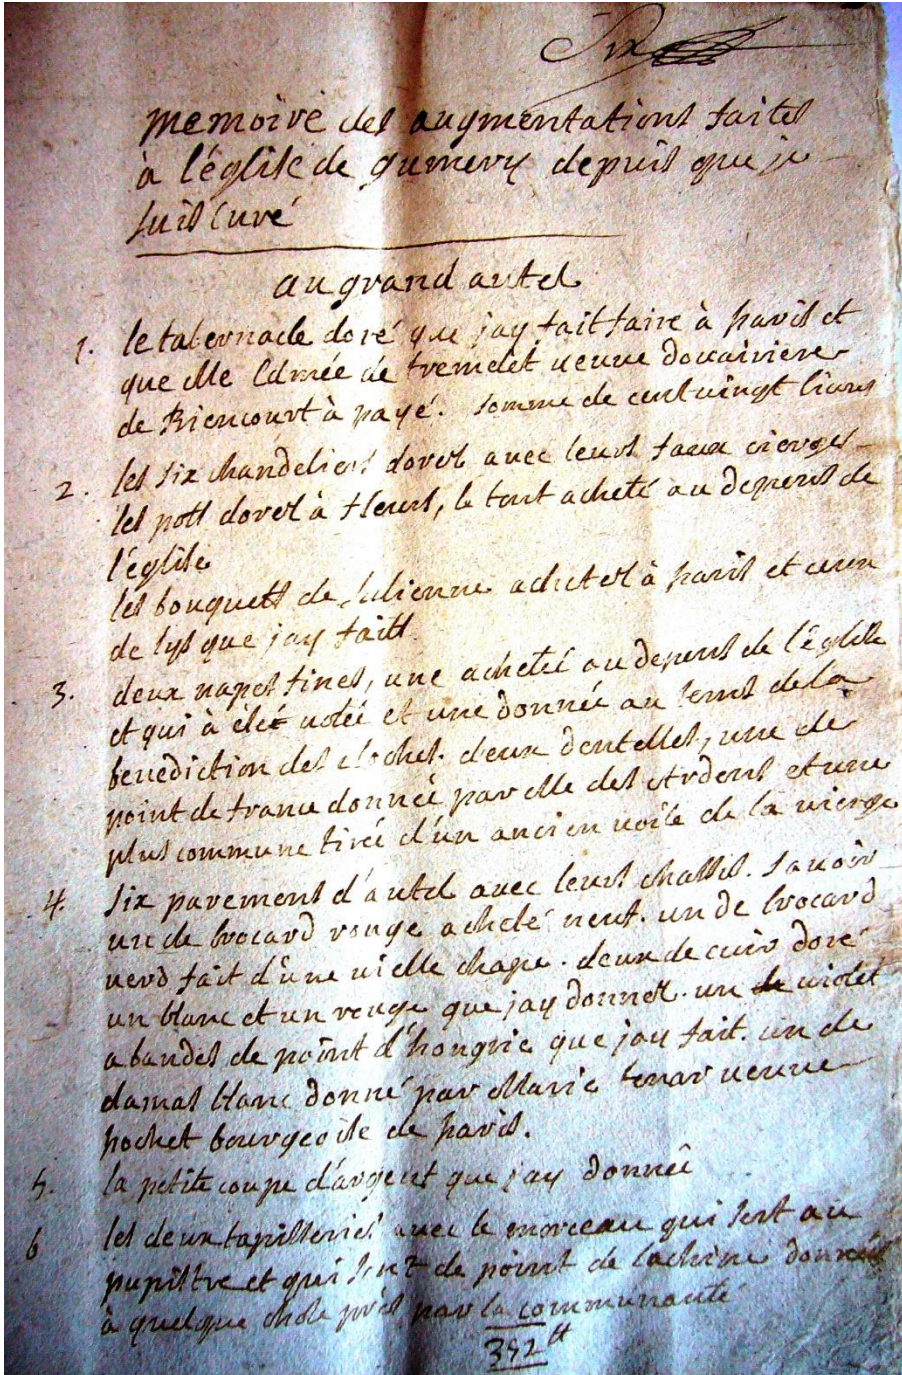 Six
memoire des augmentations faites
à l'église de gumery depuis que je
suis curé
au grand autel
1. le tabernacle doré que jay fait faire à paris et
que Melle edmée de tremelet veuve douairiere
de Riencourt à payé. somme de cent vingt livres
2. les six chandeliers dorés avec leurs faux cierges
les pots dorés à fleurs, le tout acheté au depens de
l'église
les bouquets de Julienne achetés à paris et ceux
de lys que jay faits
3. deux napes fines, une achetée au depens de l'église
et qui à été volée et une donnée au tems de la
benediction des cloches. deux dentelles, une de
point de france donnée par Melle des Ardens et une
plus commune tirée d'un ancien voile de la vierge
4. six parements d'autel avec leurs chassis. savoir
un de brocard rouge acheté neuf. un de brocard
verd fait d'une vielle chape. deux de cuir doré
un blanc et un rouge que jay donnés. un de violet
a bandes de point d'hongrie que jay fait. un de
damas blanc donné par Marie veuve
pochet bourgeoise de paris.
5. la petite coupe d'argent que jay donnée
6 les deux tapisseries avec le morceau qui sert au
pupiltre et qui sont de point de lachine données
à quelque chose près par la communauté
352 tt